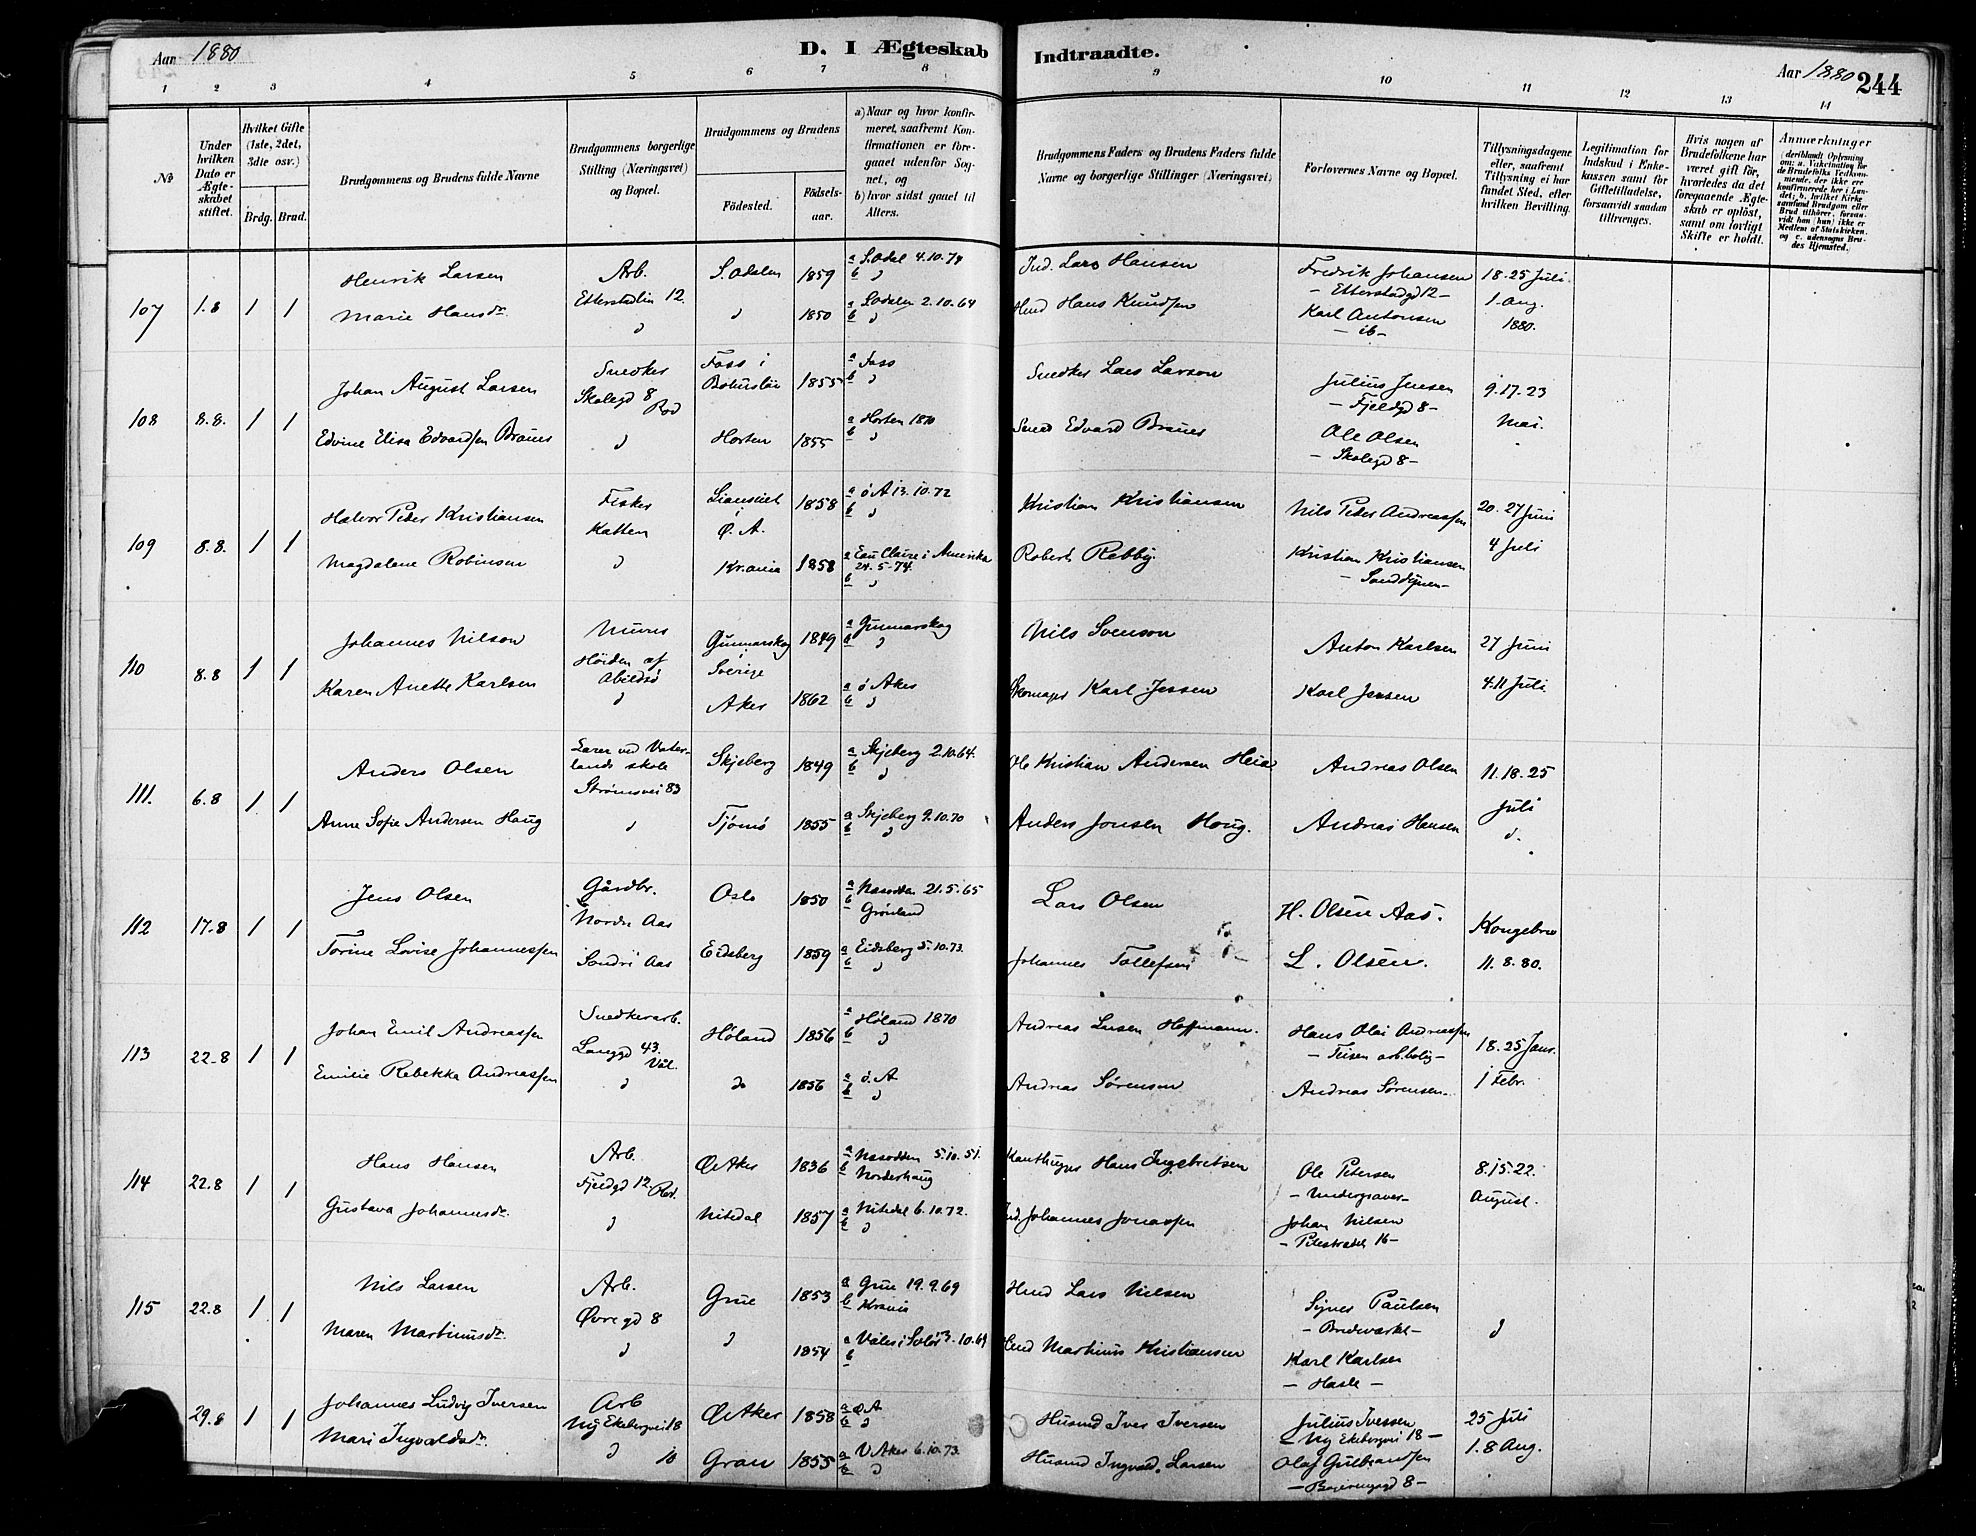 Aar 1880
D. I Ægteskab Indtraadte.
Aar 1880 244
1 2 3 4 5 6 7 8 9 10 11 12 13 14
No
Under hvilken Dato er Ægteskabet stiftet.
Hvilket Gifte (1ste, 2det, 3die osv.)
Brdg. Brud.
Brudgommens og Brudens fulde Navne
Brudgommens borgerlige Stilling (Næringsvei) og Bopæl.
Brudgommens og Brudens
Fødested.
Fødselsaar.
a) Naar og hvor konfirmeret, saafremt Konfirmationen er foregaaet udenfor Sognet, og
b) hvor sidst gaaet til Alters.
Brudgommens Faders og Brudens Faders fulde Navne og borgerlige Stillinger (Næringsvei)
Forlovernes Navne og Bopæl.
Tillysningsdagene eller, saafremt Tillysning ei har fundet Sted, efter hvilken Bevilling.
Legitimation for Indskud i Enkekassen samt for Giftetilladelse, forsaavidt saadan tiltrænges.
Hvis nogen af Brudefolkene har været gift før, hvorledes da det foregaaende Ægteskab er opløst, samt om lovligt Skifte er holdt.
Anmærkninger
107 1.8 1 1
Henrik Larsen Arb. S. Odalen 1859 a S. Odal 4.10.74 Ind. Lars Hansen Fredrik Johansen 18. 25 Juli
Etterstadlin 12. b " – Etterstadgd 12 – 1. Aug.
Marie Hansdr. " " 1850 a S. Odalen 2.10.64 Hmd Hans Knudsen Karl Antonsen 1880.
b " – ib –
108 8.8. 1 1
Johan August Larsen Snedker Foss i Bohuslän 1855 a Foss Snedker Lars Larson Julius Jensen 9. 17. 23
Skolegd 8 Rod b " – Fjeldgd 8 – Mai.
Edvine Elisa Edvardsen Braues " Horten 1855 a Horten 1870 Smed Edvard Braues Ole Olsen
b " – Skolegd 8 –
109 8.8. 1 1
Halvor Peder Kristiansen Fisker Lianseiet i Ø. A. 1858 a ø A 13.10.72 Kristian Kristiansen Nils Peder Andreassen 20. 27 Juni
Katten b " 4 Juli
Magdalene Robinson " Kr.ania 1858 a Eau Claire i Amerika Robert Rebby. Kristian Kristiansen
24.5-74. b " – Sanddynen –
110 8.8 1 1
Johannes Nilson Murer Gunnarskog i Sverige 1849 a Gunnarskog Nils Svenson Anton Karlsen 27 Juni
Høiden af Abildsø b " 4. 11 Juli
Karen Anette Karlsen " Aker 1862 a ø Aker Skomager Karl Jessen Karl Jensen
b "
111. 6.8 1 1
Anders Olsen Lærer ved Vaterlands skole Skjeberg 1849 a Skjeberg 2.10.64. Ole Kristian Andersen Heia Andreas Olsen 11. 18. 25
Strømsvei 83 b " Juli
Anne Sofie Andersen Haug " Tjømø 1855 a Skjeberg 9.10.70 Anders Jonsen Haug. Andreas Hansen
b "
112 17.8 1 1
Jens Olsen Gårdbr. Oslo 1850 a Næsodden 21.5.65 Lars Olsen H. Olsen Aas. Kongebrev
Nordr Aas b Grønland 11. 8. 80.
Torine Lovise Johannessen Sondri Aas Eidsberg 1859 a Eidsberg 5.10.73. Johannes Tollefsen L. Olsen.
b "
113 22.8 1 1
Johan Emil Andreassen Snedkerarb. Høland 1856 a Høland 1870 Andreas Larsen Hoffmann. Hans Olai Andreassen 18. 25 Janr.
Langgd 43. Vål. b " – Teisen arb.bolig – 1 Febr.
Emilie Rebekka Andreassen " do 1856 a ø. A Andreas Sørenson Andreas Sørensen.
b "
114 22.8 1 1
Hans Hansen Arb. ØAker 1836 a Næsodden 5.10.51. Hans Ingebretsen Ole Petersen 8. 15. 22.
Fjeldgd 12. Rod. b Norderhaug – Undergraver – August.
Gustava Johannesdr. " Nitedal 1857 a Nitedal 6.10.72. Ind. Johannes Jonassen Johan Nilsen
b " – Pilestrædet 16 –
115 22.8 1 1
Nils Larsen Arb. Grue 1853 a Grue 19.9.69 Hmd Lars Nilsen Signes Paulsen "
Øvregd 8 b Krania – Brudevarke –
Maren Martinusdr. " " 1854 a Våler i Solør 3.10.69 Hmd Martinus Kristiansen Karl Karlsen
b – Hasle –
29.8 1 1
Johannes Ludvig Iversen Arb ØAker 1858 a Ø A Husmd Iver Iversen Julius Iversen 25 Juli
Ny Ekebergvei 18 b " – Ny Ekebergvei 18 – 1. 8 Aug.
Mari Ingvaldsdr. " 10 Gran 1855 a V. Aker 6.10.73. Husmd Ingvald Larsen Olaf Gulbrandsen
b " 8 –